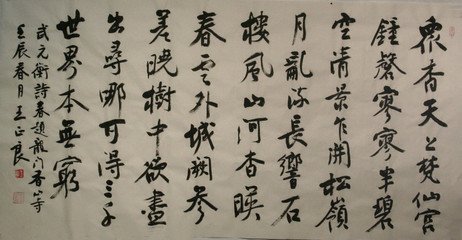 衆香天上梵仙宮
鍾磬寥寥半碧
空清景乍開松嶺
月亂流長響石
樓風山河杳暎
春雲外城闕參
差曉樹中欲盡
出尋哪可得三千
世界本無窮
武元衡詩春題龍门香山寺
壬辰春月王正良